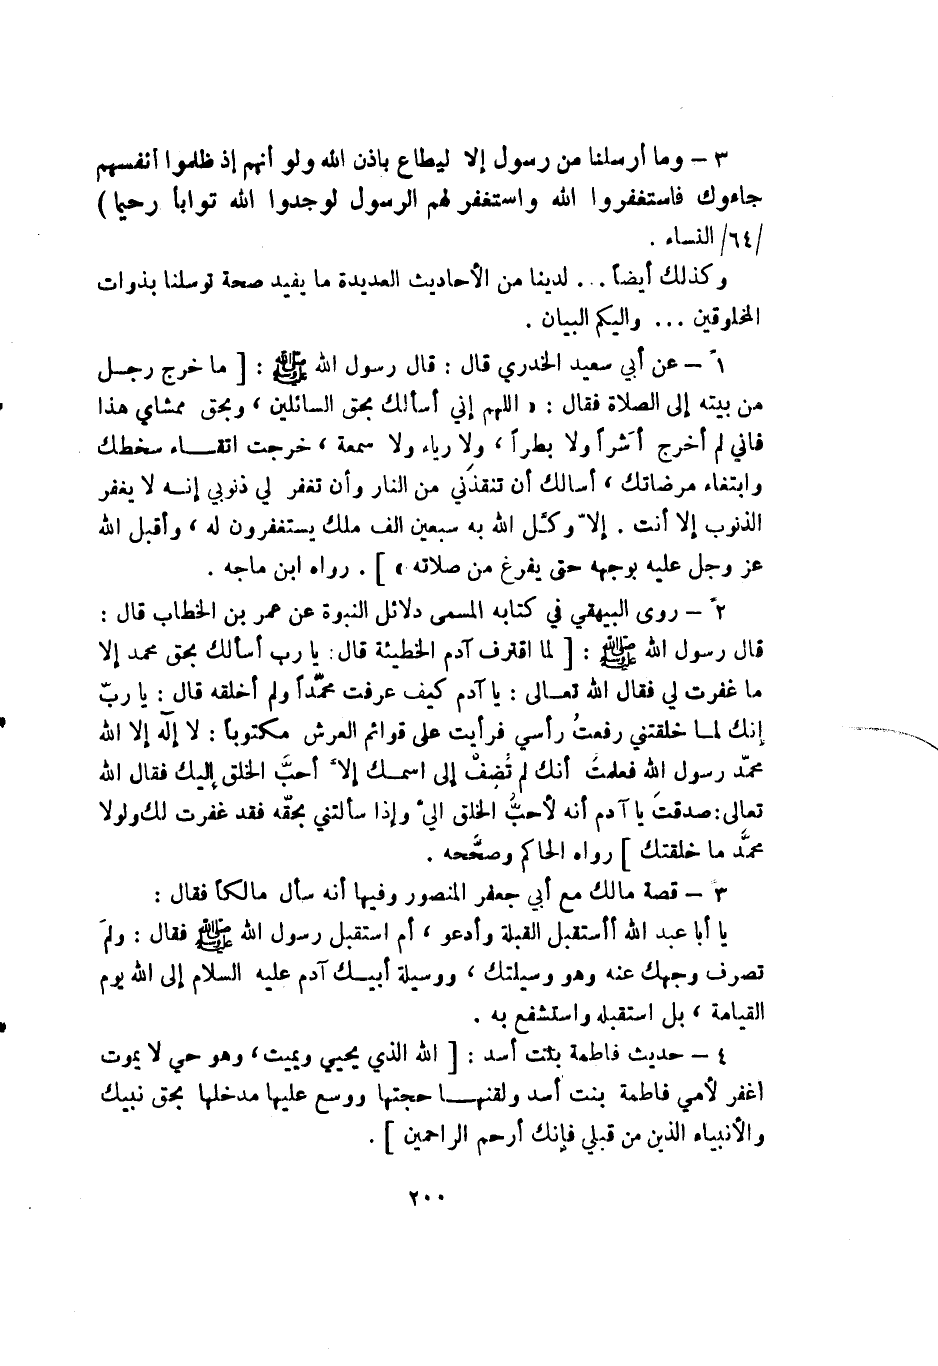 ٣ – وما أرسلنا من رسول إلا ليطاع باذن الله ولو أنهم إذ ظلموا أنفسهم
جاءوك فاستغفروا الله واستغفر لهم الرسول لوجدوا الله تواباً رحيما )
/٦٤/ النساء .
وكذلك أيضاً ... لدينا من الأحاديث العديدة ما يفيد صحة توسلنا بذوات
المخلوقين ... واليكم البيان .
١ً – عن أبي سعيد الخدري قال : قال رسول الله ﷺ : [ ما خرج رجل
من بيته إلى الصلاة فقال : « اللهم إني أسألك بحق السائلين ، وبحق ممشاي هذا
فاني لم أخرج أشراً ولا بطراً ، ولا رياء ولا سمعة ، خرجت اتقاء سخطك
وابتغاء مرضاتك ، أسالك أن تنقذني من النار وأن تغفر لي ذنوبي إنه لا يغفر
الذنوب إلا أنت . إلاّ وكّل الله به سبعين الف ملك يستغفرون له ، وأقبل الله
عز وجل عليه بوجهه حتى يفرغ من صلاته » ] . رواه ابن ماجه .
٢ً – روى البيهقي في كتابه المسمى دلائل النبوة عن عمر بن الخطاب قال :
قال رسول الله ﷺ : [ لما اقترف آدم الخطيئة قال: يا رب أسألك بحق محمد إلا
ما غفرت لي فقال الله تعالى : يا آدم كيف عرفت محمّداً ولم أخلقه قال : يا ربّ
إنك لما خلقتني رفعتُ رأسي فرأيت على قوائم العرش مكتوباً : لا إلَه إلا الله
محمّد رسول الله فعلمتُ أنك لم تُضِفْ إلى اسمك إلاّ أحبَّ الخلق إليك فقال الله
تعالى: صدقتَ يا آدم أنه لأحبُّ الخلق اليّ وإذا سألتني بحقّه فقد غفرت لك ولولا
محمّد ما خلقتك ] رواه الحاكم وصحّحه .
٣ – قصة مالك مع أبي جعفر المنصور وفيها أنه سأل مالكاً فقال :
يا أبا عبد الله أأستقبل القبلة وأدعو ، أم استقبل رسول الله ﷺ فقال : ولمَ
تصرف وجهك عنه وهو وسيلتك ، ووسيلة أبيك آدم عليه السلام إلى الله يوم
القيامة ، بل استقبله واستشفع به .
٤ – حديث فاطمة بنت أسد : [ الله الذي يحيي ويميت ، وهو حي لا يموت
اغفر لأمي فاطمة بنت أسد ولقنها حجتها ووسع عليها مدخلها بحق نبيك
والأنبياء الذين من قبلي فإنك أرحم الراحمين ] .
٢٠٠